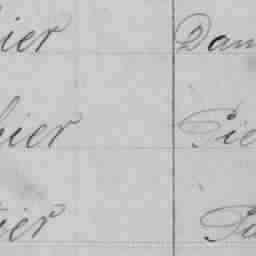 ier Dam
bier Pie
ier Pa